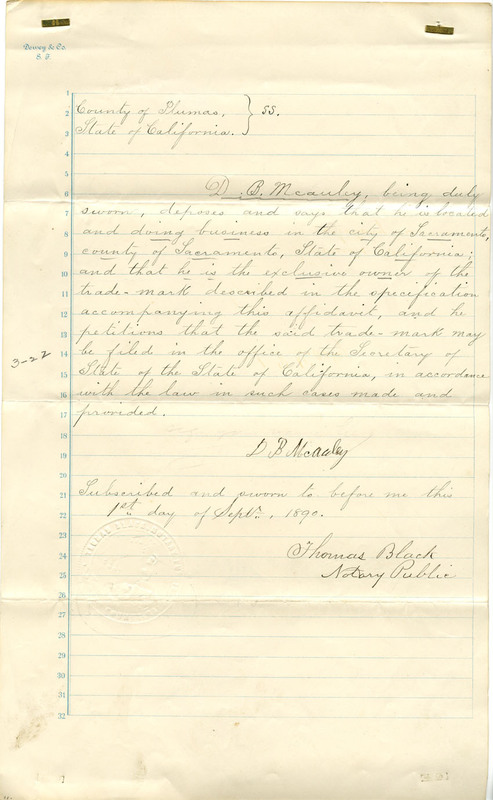 Dewey & Co.
S. F.
1
2 County of Plumas, } ss.
3 State of California.
4
5
6 D. B. McAuley, being duly
7 sworn, deposes and says that he is located
8 and doing business in the city of Sacramento,
9 county of Sacramento, State of California;
10 and that he is the exclusive owner of the
11 trade-mark described in the specification
12 accompanying this affidavit, and he
13 petitions that the said trade-mark may
14 be filed in the office of the Secretary of
15 State of the State of California, in accordance
16 with the law in such cases made and
17 provided.
3-22
18
19 D B McAuley
20
21 Subscribed and sworn to before me this
22 1st day of Septr., 1890.
23
24 Thomas Black
25 Notary Public
26
27
28
29
30
31
32